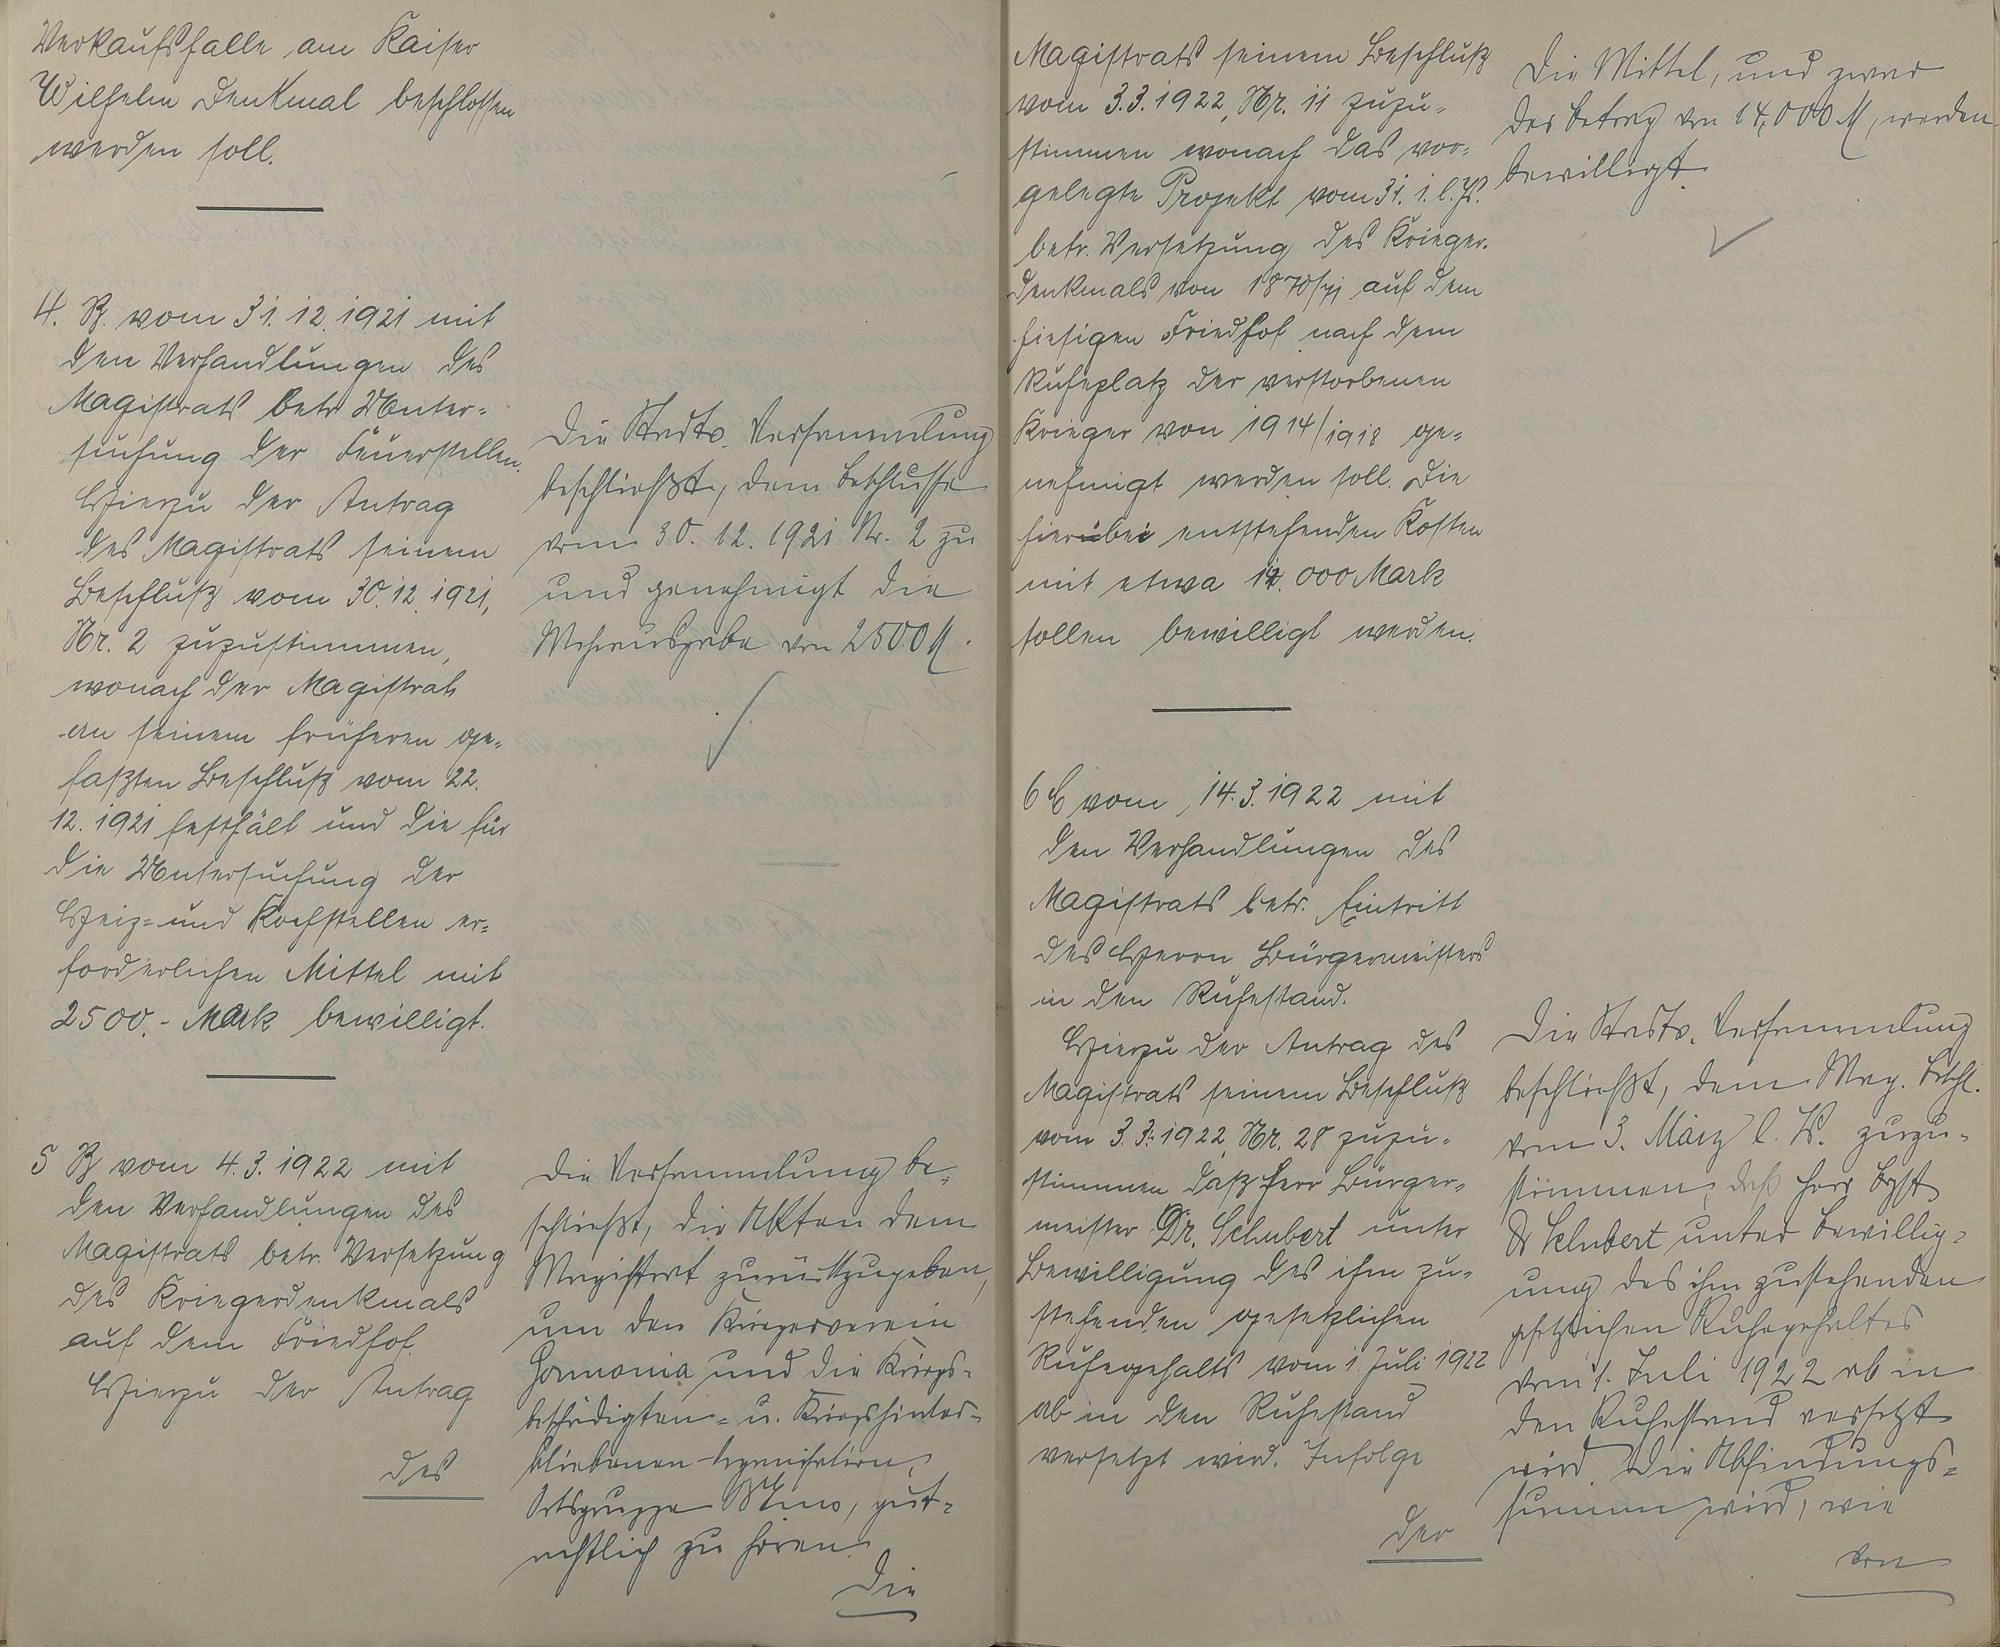 Verkaufshalle am Kaiser
Wilhelm Denkmal beschlossen
werden soll.
4. B. vom 31.12.1921 mit
den Verhandlungen des
Magistrats betr. Unter-
suchung der Feuerstellen.
Hierzu der Antrag
des Magistrats seinem
Beschluß vom 30.12.1921,
Nr. 2 zuzustimmen,
wonach der Magistrat
an seinem früheren ge-
faßten Beschluß vom 22.
12.1921 festhält und die für
die Untersuchung der
Heiz- und Kochstellen er-
forderlichen Mittel mit
2500.- Mark bewilligt.
Die Stadtv. Versammlung
beschließt, dem Beschlusse
vom 30.12.1921 Nr. 2 zu
und genehmigt die
Mehrausgabe von 2500 M.
5 B vom 4.3.1922 mit
den Verhandlungen des
Magistrats betr. Versetzung
des Kriegerdenkmals
auf dem Friedhof.
Hierzu der Antrag
des
Die Versammlung be-
schließt, die Akten dem
Magistrat zurückzugeben,
um den Kriegerverein
Germania und die Kriegs-
beschädigten- u. Kriegshinter-
bliebenen Organisation,
Ortsgruppe, gut-
achtlich zu hören.
Die
Magistrats seinem Beschluß
vom 3.3.1922, Nr. 11 zuzu-
stimmen wonach das vor-
gelegte Projekt vom 31.1.l.Js.
betr. Versetzung des Krieger-
denkmals von 1870/71 auf dem
hiesigen Friedhof nach dem
Ruheplatz der verstorbenen
Krieger von 1914/1918 ge-
nehmigt werden soll. Die
hierbei entstehenden Kosten
mit etwa 14.000 Mark
sollen bewilligt werden.
Die Mittel, und zwar
der Betrag von 14,000 M, werden
bewilligt.
6 vom 14.3.1922 mit
den Verhandlungen des
Magistrats betr. Eintritt
des Herrn Bürgermeisters
in den Ruhestand.
Hierzu der Antrag des
Magistrats seinem Beschluß
vom 3.3.1922, Nr. 28 zuzu-
stimmen daß Herr Bürger-
meister Dr. Schubert unter
Bewilligung des ihm zu-
stehenden gesetzlichen
Ruhegehalts vom 1. Juli 1922
ab in den Ruhestand
versetzt wird. Infolge
der
Die Stadtv. Versammlung
beschließt, dem Mag. Beschl.
vom 3. März l. Js. zuzu-
stimmen, daß Herr Bgst
Dr Schubert unter Bewillig-
ung des ihm zustehenden
gesetzlichen Ruhegehaltes
vom 1. Juli 1922 ab in
den Ruhestand versetzt
wird. Die Abfindungs-
summe wird, wie
von